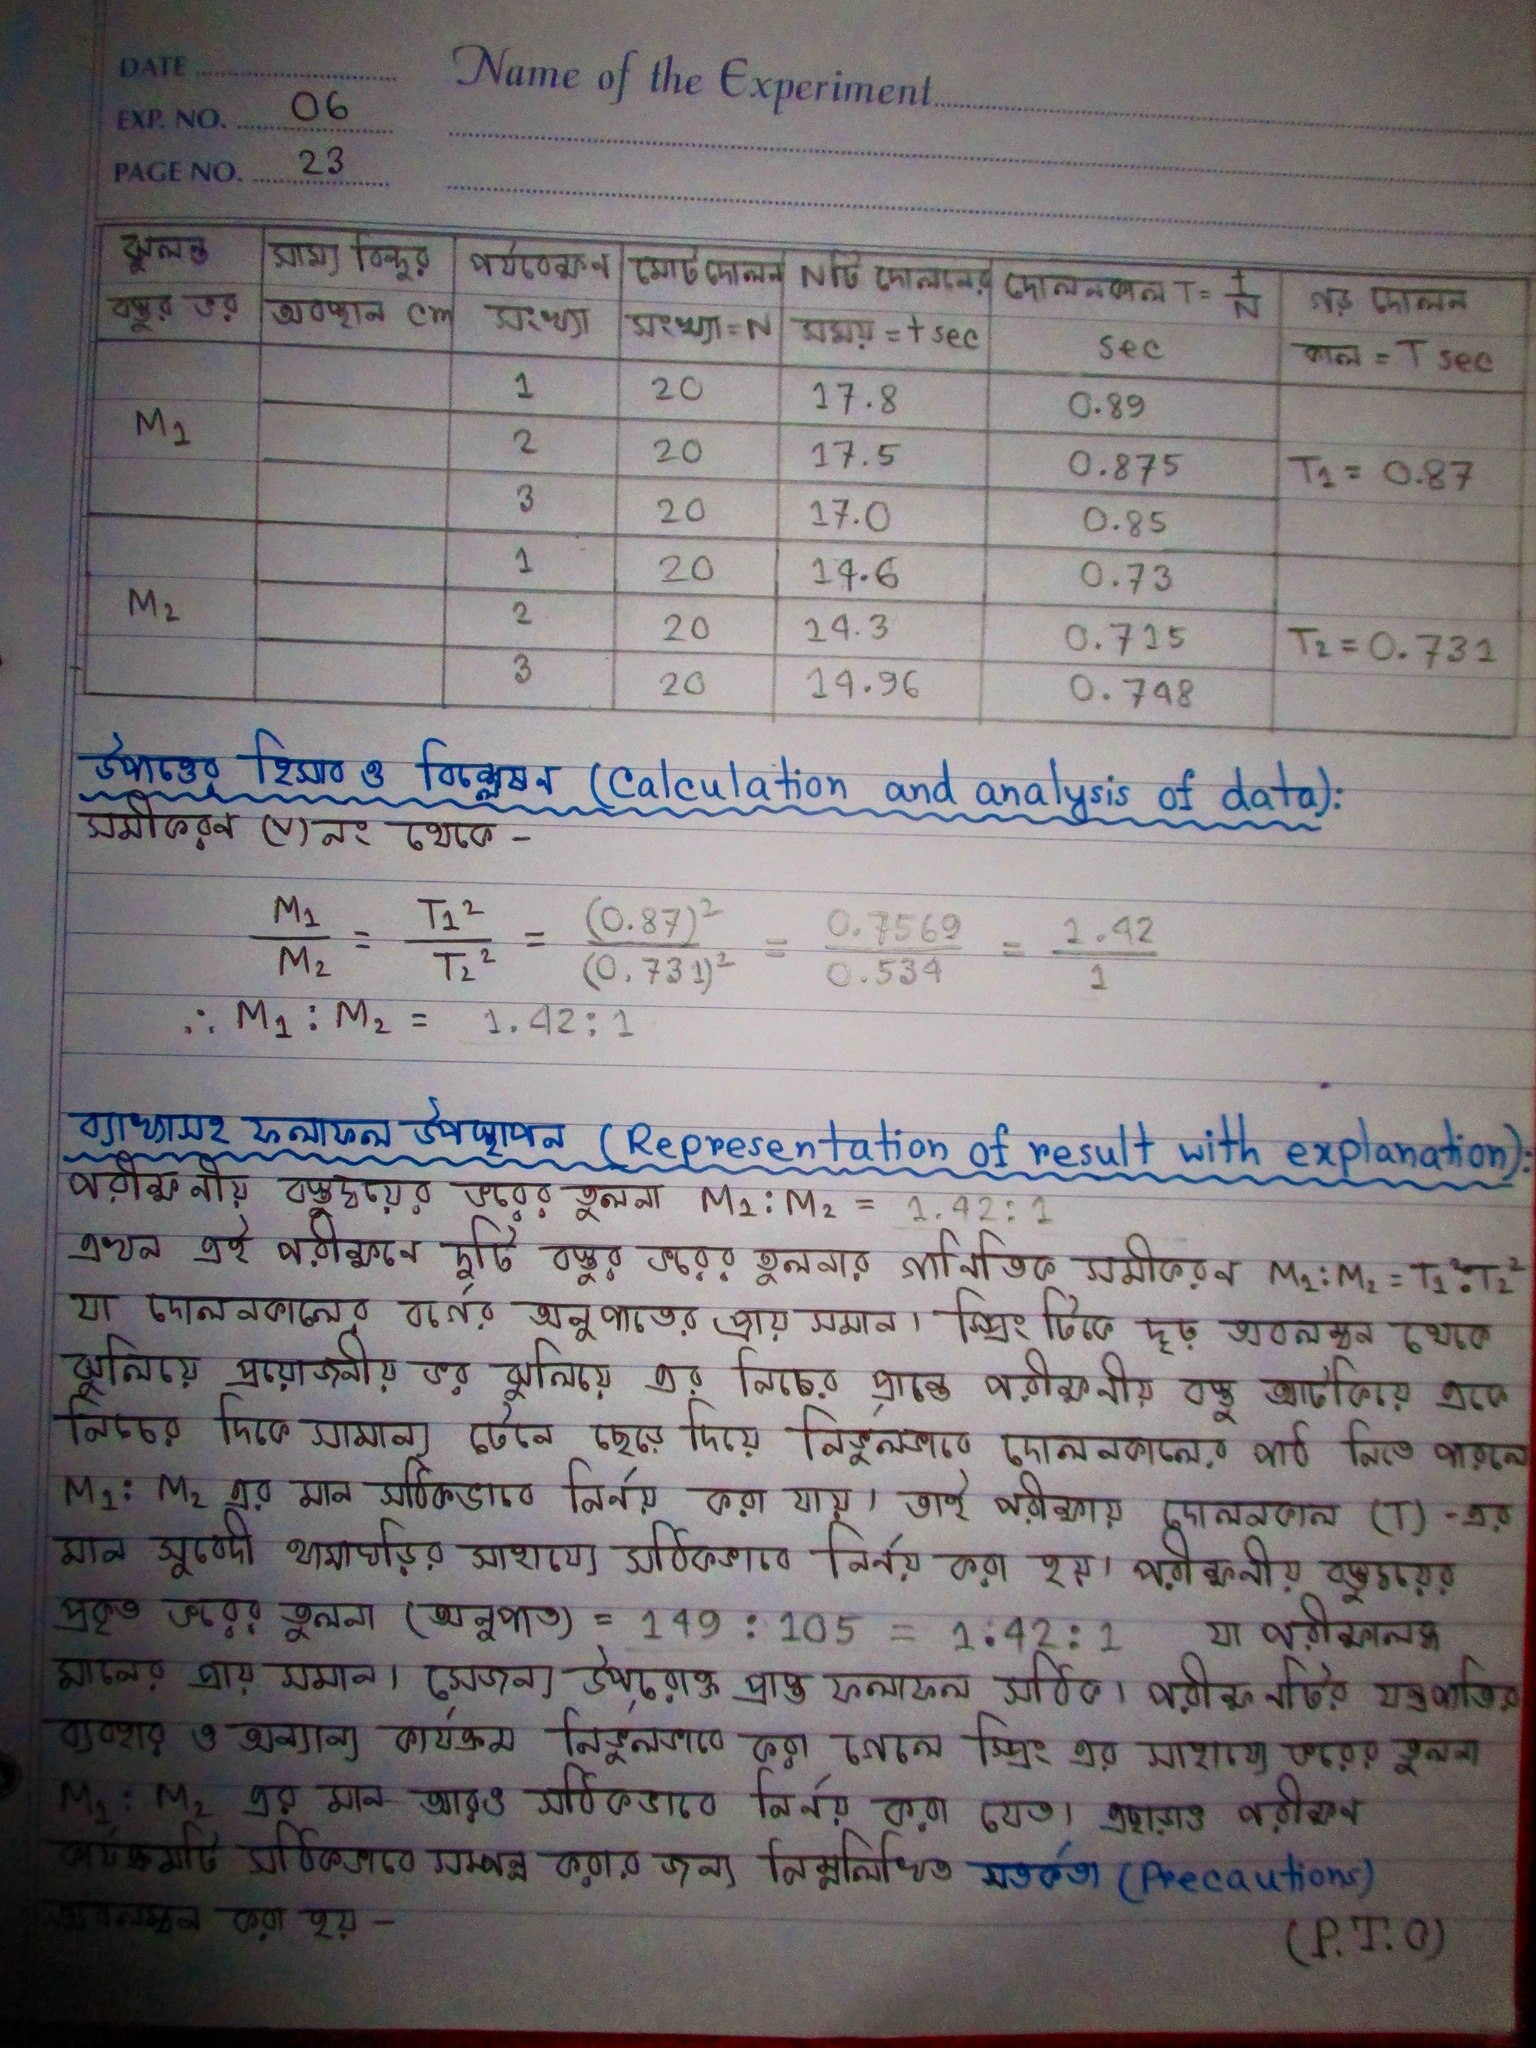 DATE
Name of the Experiment
EXP. NO. 06
PAGE NO. 23
ঝুলন্ত বস্তুর ভর | সাম্য বিন্দুর অবস্থান cm | পর্যবেক্ষণ সংখ্যা | মোট দোলন সংখ্যা = N | N টি দোলনের সময় = t sec | দোলনকাল T = t/N sec | গড় দোলন কাল = T sec
M₁ | 1 | 20 | 17.8 | 0.89 | T₁ = 0.87
2 | 20 | 17.5 | 0.875
3 | 20 | 17.0 | 0.85
M₂ | 1 | 20 | 14.6 | 0.73 | T₂ = 0.731
2 | 20 | 14.3 | 0.715
3 | 20 | 14.96 | 0.748
উপাত্তের হিসাব ও বিশ্লেষন (Calculation and analysis of data):
সমীকরন (V) নং থেকে -
M₁/M₂ = T₁²/T₂² = (0.87)²/(0.731)² = 0.7569/0.534 = 1.42/1
∴ M₁ : M₂ = 1.42 : 1
ব্যাখ্যাসহ ফলাফল উপস্থাপন (Representation of result with explanation):
পরীক্ষনীয় বস্তুদ্বয়ের ভরের তুলনা M₁ : M₂ = 1.42 : 1
এখন এই পরীক্ষনে দুটি বস্তুর ভরের তুলনার গানিতিক সমীকরন M₁ : M₂ = T₁² : T₂²
যা দোলনকালের বর্গের অনুপাতের প্রায় সমান। স্প্রিং টিকে দৃঢ় অবলম্বন থেকে
ঝুলিয়ে প্রয়োজনীয় ভর ঝুলিয়ে এর নিচের প্রান্তে পরীক্ষনীয় বস্তু আটকিয়ে একে
নিচের দিকে সামান্য টেনে ছেড়ে দিয়ে নির্ভুলভাবে দোলনকালের পাঠ নিতে পারলে
M₁ : M₂ এর মান সঠিকভাবে নির্নয় করা যায়। তাই পরীক্ষায় দোলনকাল (T) -এর
মান সুবেদী থামাঘড়ির সাহায্যে সঠিকভাবে নির্নয় করা হয়। পরীক্ষনীয় বস্তুদ্বয়ের
প্রকৃত ভরের তুলনা (অনুপাত) = 149 : 105 = 1:42 : 1 যা পরীক্ষালব্ধ
মানের প্রায় সমান। সেজন্য উপরোক্ত প্রাপ্ত ফলাফল সঠিক। পরীক্ষনটির যন্ত্রপাতির
ব্যবহার ও অন্যান্য কার্যক্রম নির্ভুলভাবে করা গেলে স্প্রিং এর সাহায্যে ভরের তুলনা
M₁ : M₂ এর মান আরও সঠিকভাবে নির্নয় করা যেত। এছাড়াও পরীক্ষন
কার্যক্রমটি সঠিকভাবে সম্পন্ন করার জন্য নিম্নলিখিত সতর্কতা (Precautions)
অবলম্বন করা হয় -
(P.T.O)